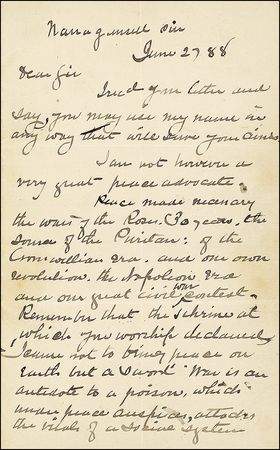 Narragansett Pier
June 27 88
Dear Sir
I red your letter and
say, you may use my name in
any way that will serve your aims
I am not however a
very great peace advocate.
Peace made necesary
the wars of the Roses (30 years. the
of the Puritan: of the
Cromwellian era. and our own
revolution. the Napoleon era
and our great civil war contest.
Remember that the Schrine at
which you worship declared
I came not to bring peace on
Earth but a Sword War is an
antidote to a poison, which
under peace auspices, attacks
the vitals of a social system